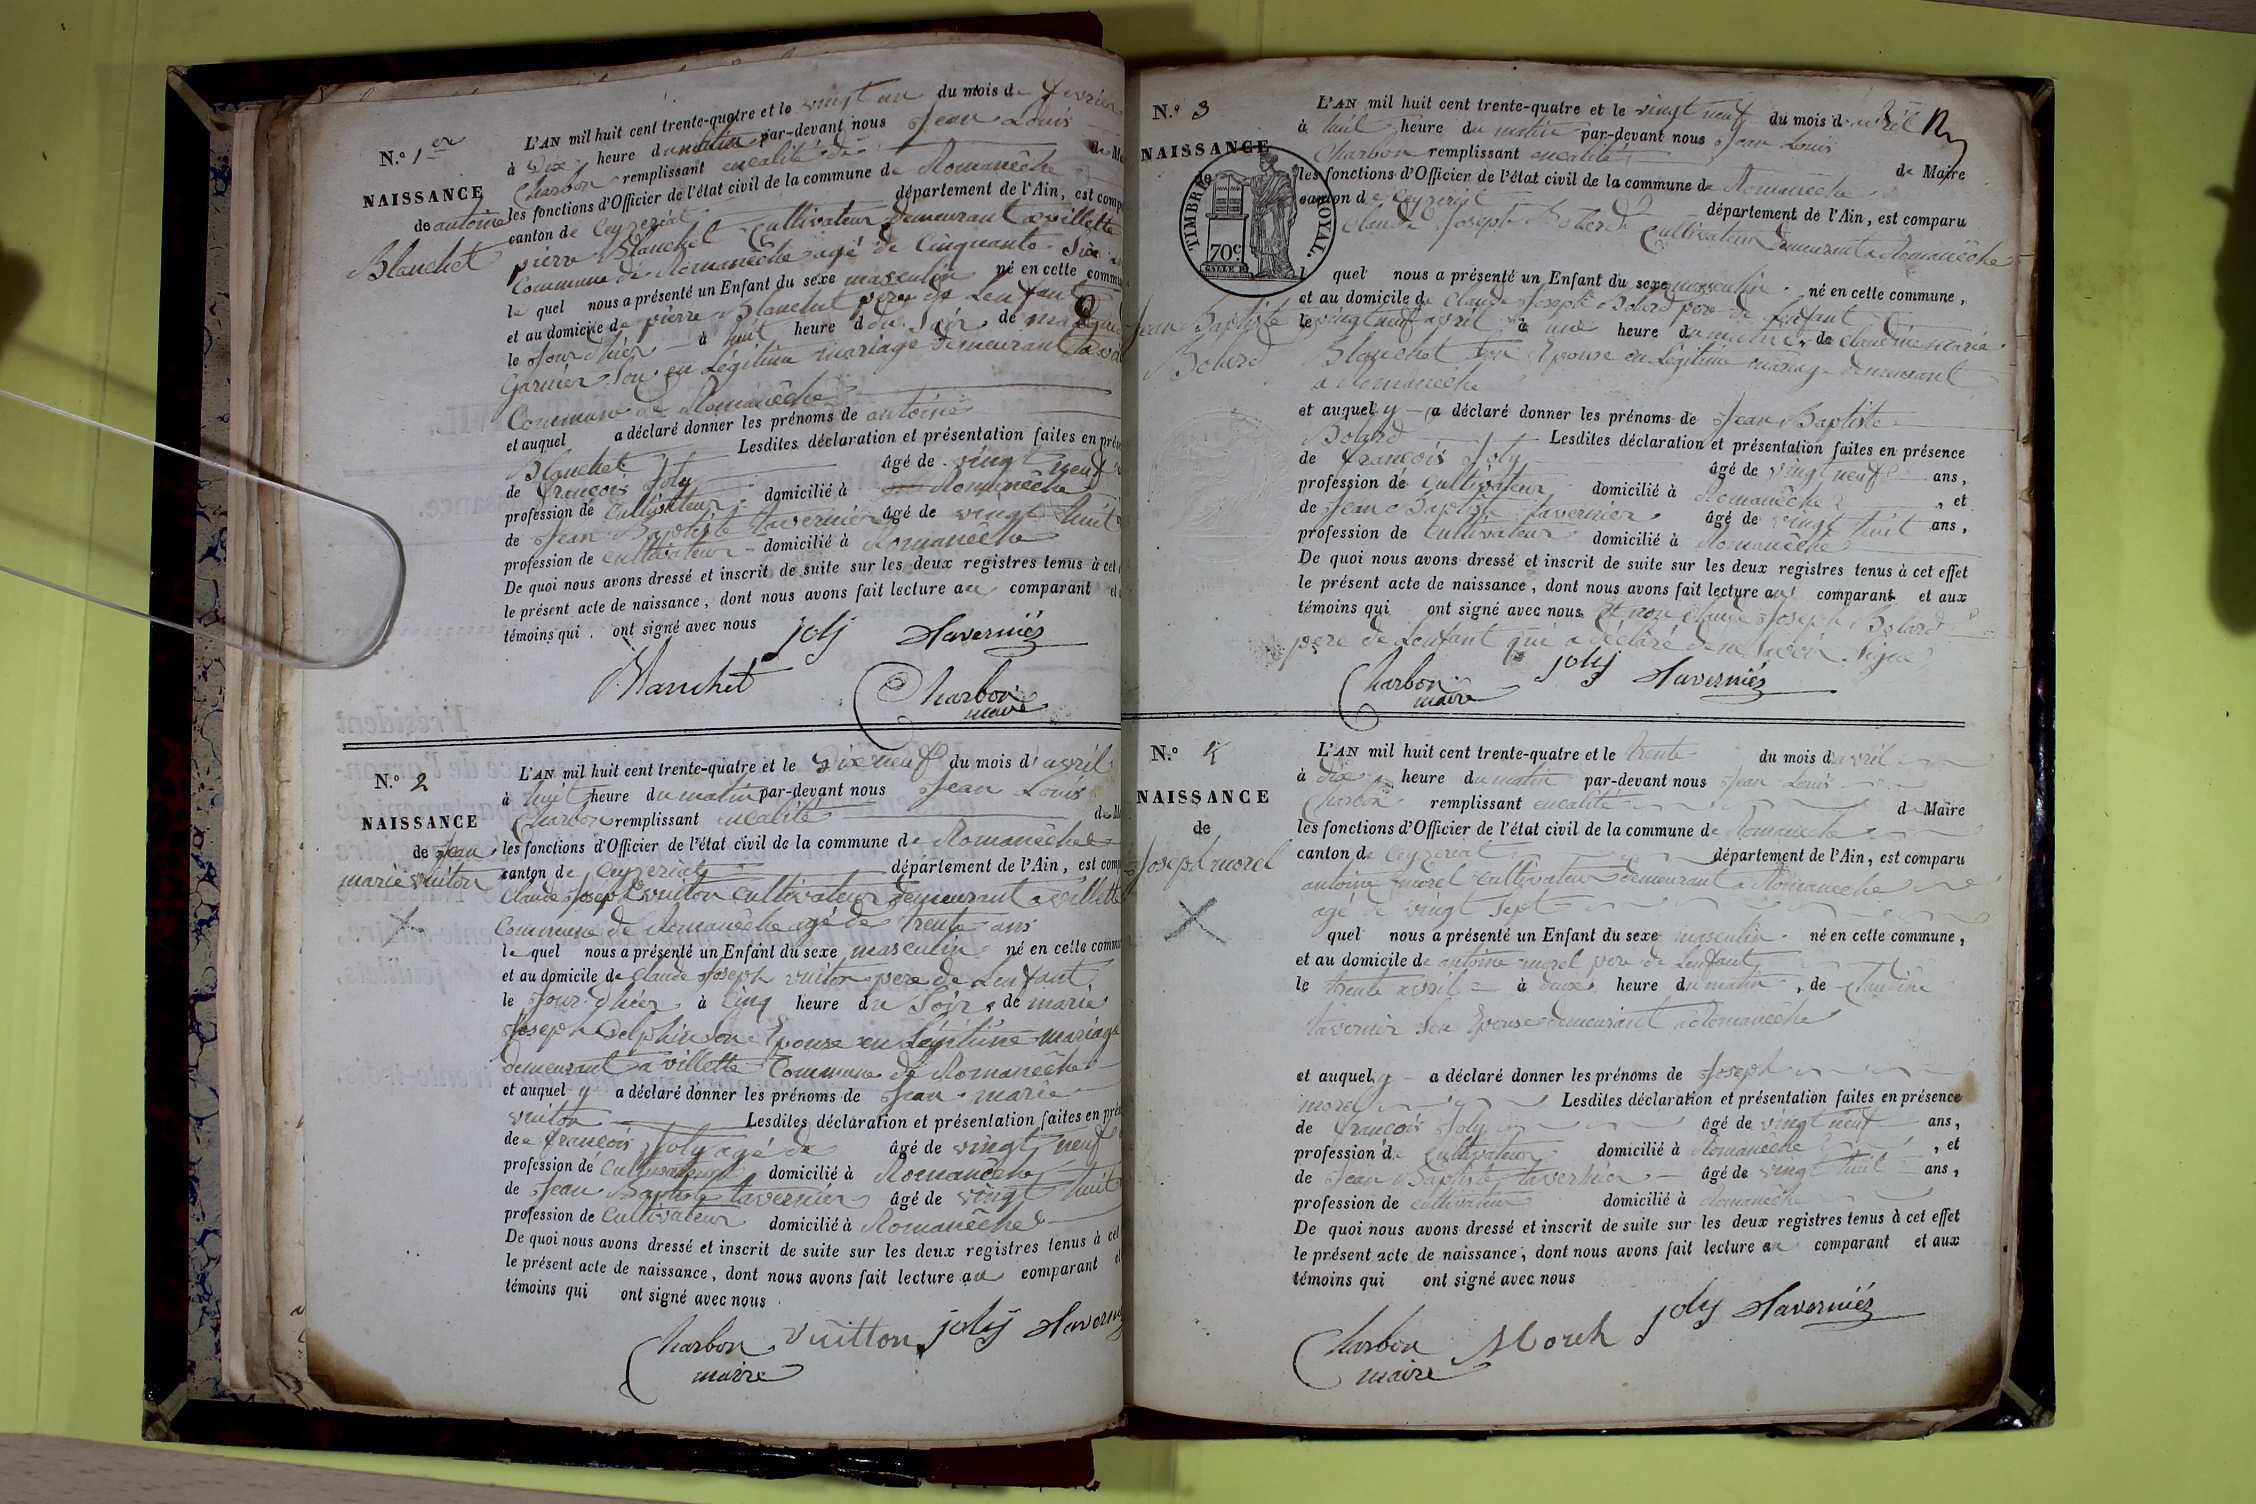 N.º 1er
NAISSANCE
de antoine
Blanchet
L'AN mil huit cent trente-quatre et le vingt un du mois de fevrier
à Dix heure du matin par-devant nous Jean Louis
Charbon remplissant en calité de
les fonctions d'Officier de l'état civil de la commune de Romanêche
canton de Ceyzeriat département de l'Ain, est comp
pierre Blanchet cultivateur demeurant a villette
Commune de Romanêche agé de Cinquante Six
le quel nous a présenté un Enfant du sexe masculin né en cette commu
et au domicile de pierre Blanchet pere de Lenfant
le Jour dhier à huit heure du Soir, de
Garnier Son en Légitime mariage demeurant a
Commune de Romanêche
et auquel a déclaré donner les prénoms de antoine
Blanchet Lesdites déclaration et présentation faites en prés
de françois Joly âgé de vingt neuf
profession de Cultivateur domicilié à Romanêche
de Jean Baptiste tavernier âgé de vingt huit
profession de cultivateur domicilié à Romanêche
De quoi nous avons dressé et inscrit de suite sur les deux registres tenus à cet
le présent acte de naissance, dont nous avons fait lecture au comparant et
témoins qui ont signé avec nous
joly Taverniér
Blanchet Charbon
maire
N.º 2
NAISSANCE
de Jean
marie vuiton
L'AN mil huit cent trente-quatre et le Dix neuf du mois d'avril
à huit heure du matin par-devant nous Jean Louis
Charbon remplissant en calité de M
les fonctions d'Officier de l'état civil de la commune de Romanêche
canton de Ceyzeriat département de l'Ain, est comp
Claude Joseph vuiton Cultivateur demeurant a villette
Commune de Romanêche agé de trente ans
le quel nous a présenté un Enfant du sexe masculin né en cette commu
et au domicile de Claude Joseph vuiton pere de Lenfant
le Jour dhier à Cinq heure du Soir, de marie
Joseph Delphin Son Epouse en Légitime mariage
demeurant a villette Commune de Romanêche
et auquel y a déclaré donner les prénoms de Jean marie
vuiton Lesdites déclaration et présentation faites en prés
de françois Joly agé de âgé de vingt neuf
profession de Cultivateur domicilié à Romanêche
de Jean Baptiste tavernier âgé de vingt huit
profession de Cultivateur domicilié à Romanêche
De quoi nous avons dressé et inscrit de suite sur les deux registres tenus à cet
le présent acte de naissance, dont nous avons fait lecture au comparant et
témoins qui ont signé avec nous
Charbon Vuitton joly Taverni
maire
N.º 3
NAISSANCE
de
Jean Baptiste
Bolard
TIMBRE ROYAL.
70c
L'AN mil huit cent trente-quatre et le vingt neuf du mois d'avril
à huit heure du matin par-devant nous Jean Louis
Charbon remplissant en calité de Maire
les fonctions d'Officier de l'état civil de la commune de Romanêche
canton de Ceyzeriat département de l'Ain, est comparu
Claude Joseph Bolard Cultivateur demeurant a Romanêche
l quel nous a présenté un Enfant du sexe masculin né en cette commune,
et au domicile de Claude Joseph Bolard pere de Lenfant
le vingt neuf avril à une heure du matin, de claudine marie
Blanchet Son Epouse en Légitime mariage demeurant
a Romanêche
et auquel y a déclaré donner les prénoms de Jean Baptiste
Bolard Lesdites déclaration et présentation faites en présence
de françois Joly âgé de vingt neuf ans,
profession de Cultivateur domicilié à Romanêche, et
de Jean Baptiste tavernier âgé de vingt huit ans,
profession de Cultivateur domicilié à Romanêche
De quoi nous avons dressé et inscrit de suite sur les deux registres tenus à cet effet
le présent acte de naissance, dont nous avons fait lecture au comparant et aux
témoins qui ont signé avec nous et non Claude Joseph Bolard
pere de Lenfant que a déclaré de ne Savoir Signé
Charbon joly Taverniér
maire
N.º 4
NAISSANCE
de
Joseph morel
L'AN mil huit cent trente-quatre et le trente du mois d'avril
à dix heure du matin par-devant nous Jean Louis
Charbon remplissant en calité de Maire
les fonctions d'Officier de l'état civil de la commune de Romanêche
canton de Ceyzeriat département de l'Ain, est comparu
antoine morel cultivateur demeurant a Romanêche
agé de vingt Sept
quel nous a présenté un Enfant du sexe masculin né en cette commune,
et au domicile de antoine morel pere de Lenfant
le trente avril à deux heure du matin, de Claudine
tavernier Son Epouse demeurant a Romanêche
et auquel y a déclaré donner les prénoms de Joseph
morel Lesdites déclaration et présentation faites en présence
de françois Joly âgé de vingt neuf ans,
profession de Cultivateur domicilié à Romanêche, et
de Jean Baptiste tavernier âgé de vingt huit ans,
profession de cultivateur domicilié à Romanêche
De quoi nous avons dressé et inscrit de suite sur les deux registres tenus à cet effet
le présent acte de naissance, dont nous avons fait lecture au comparant et aux
témoins qui ont signé avec nous
Charbon Morel joly Taverniér
maire